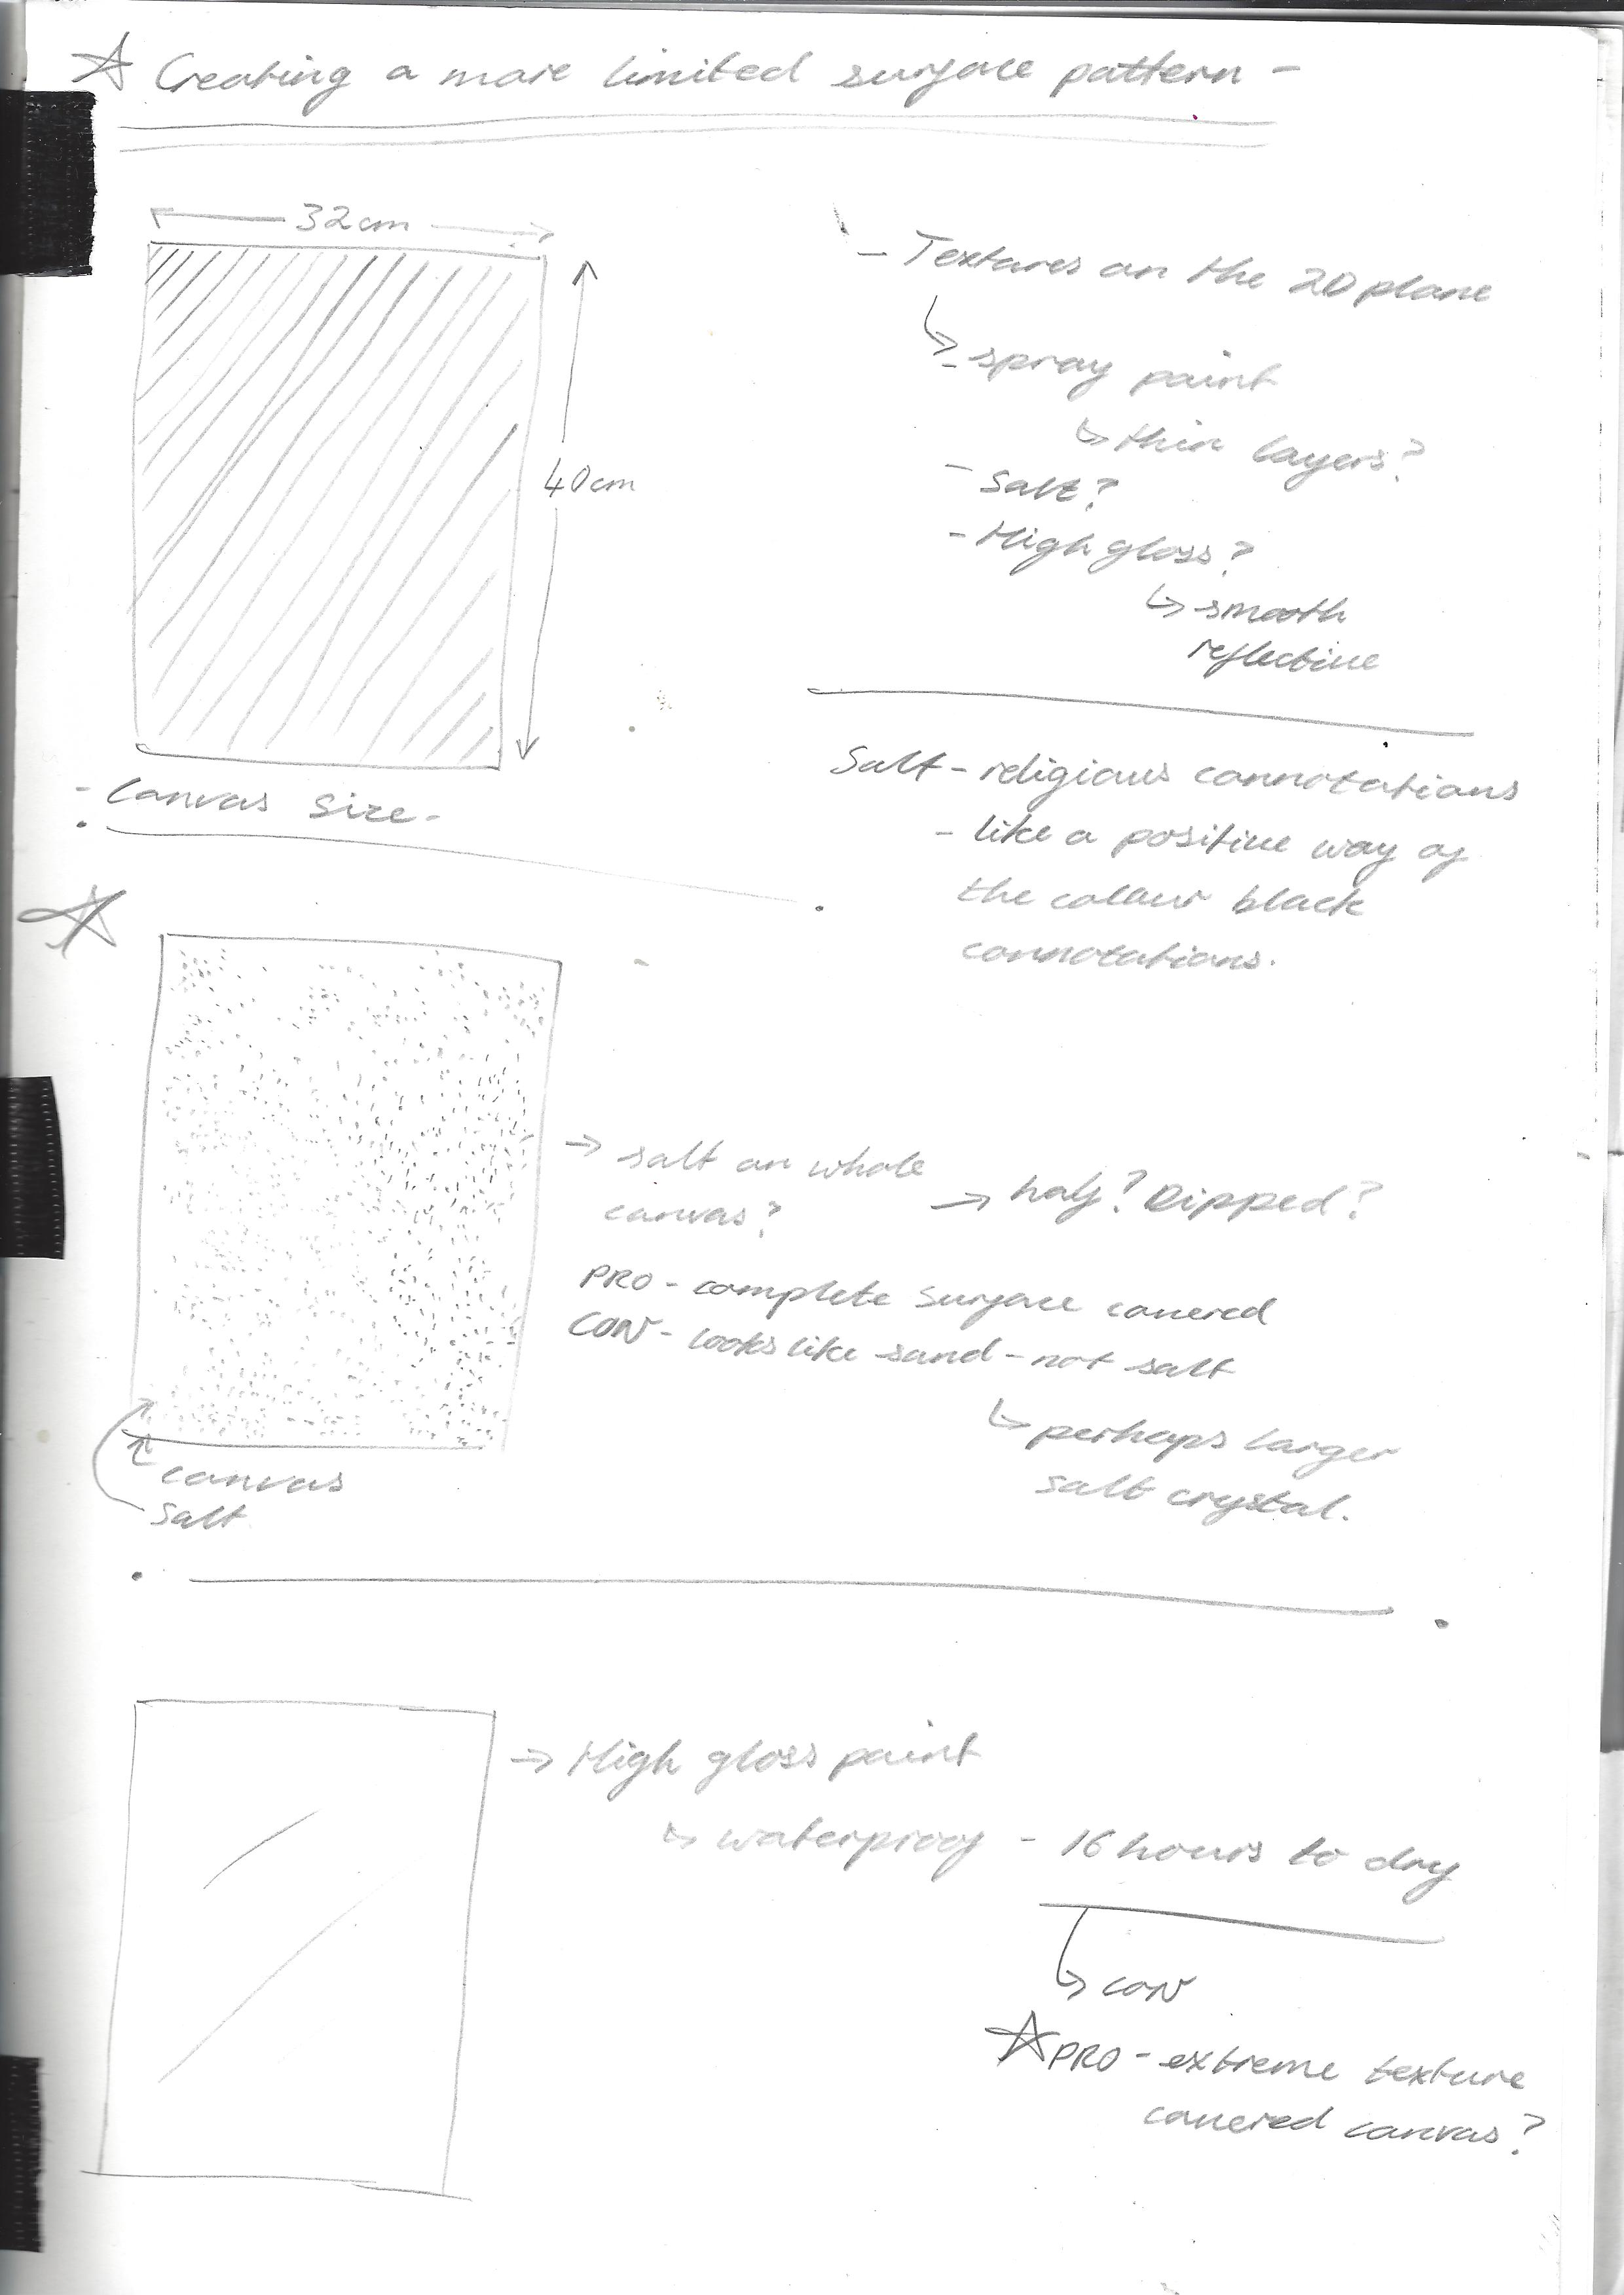 ☆ Creating a more limited surface pattern -
32cm
40cm
- Canvas size -
- Textures on the 2D plane
↳ - spray paint
↳ thin layers?
- Salt?
- High gloss?
↳ smooth
reflective
Salt - religious connotations
- like a positive way of
the colour black
connotations.
→ salt on whole
canvas?
→ half? Dipped?
PRO - complete surface covered
CON - looks like sand - not salt
↳ perhaps larger
salt crystal.
canvas
salt
→ High gloss paint
↳ waterproof - 16 hours to dry
↳ CON
☆ PRO - extreme texture
covered canvas?